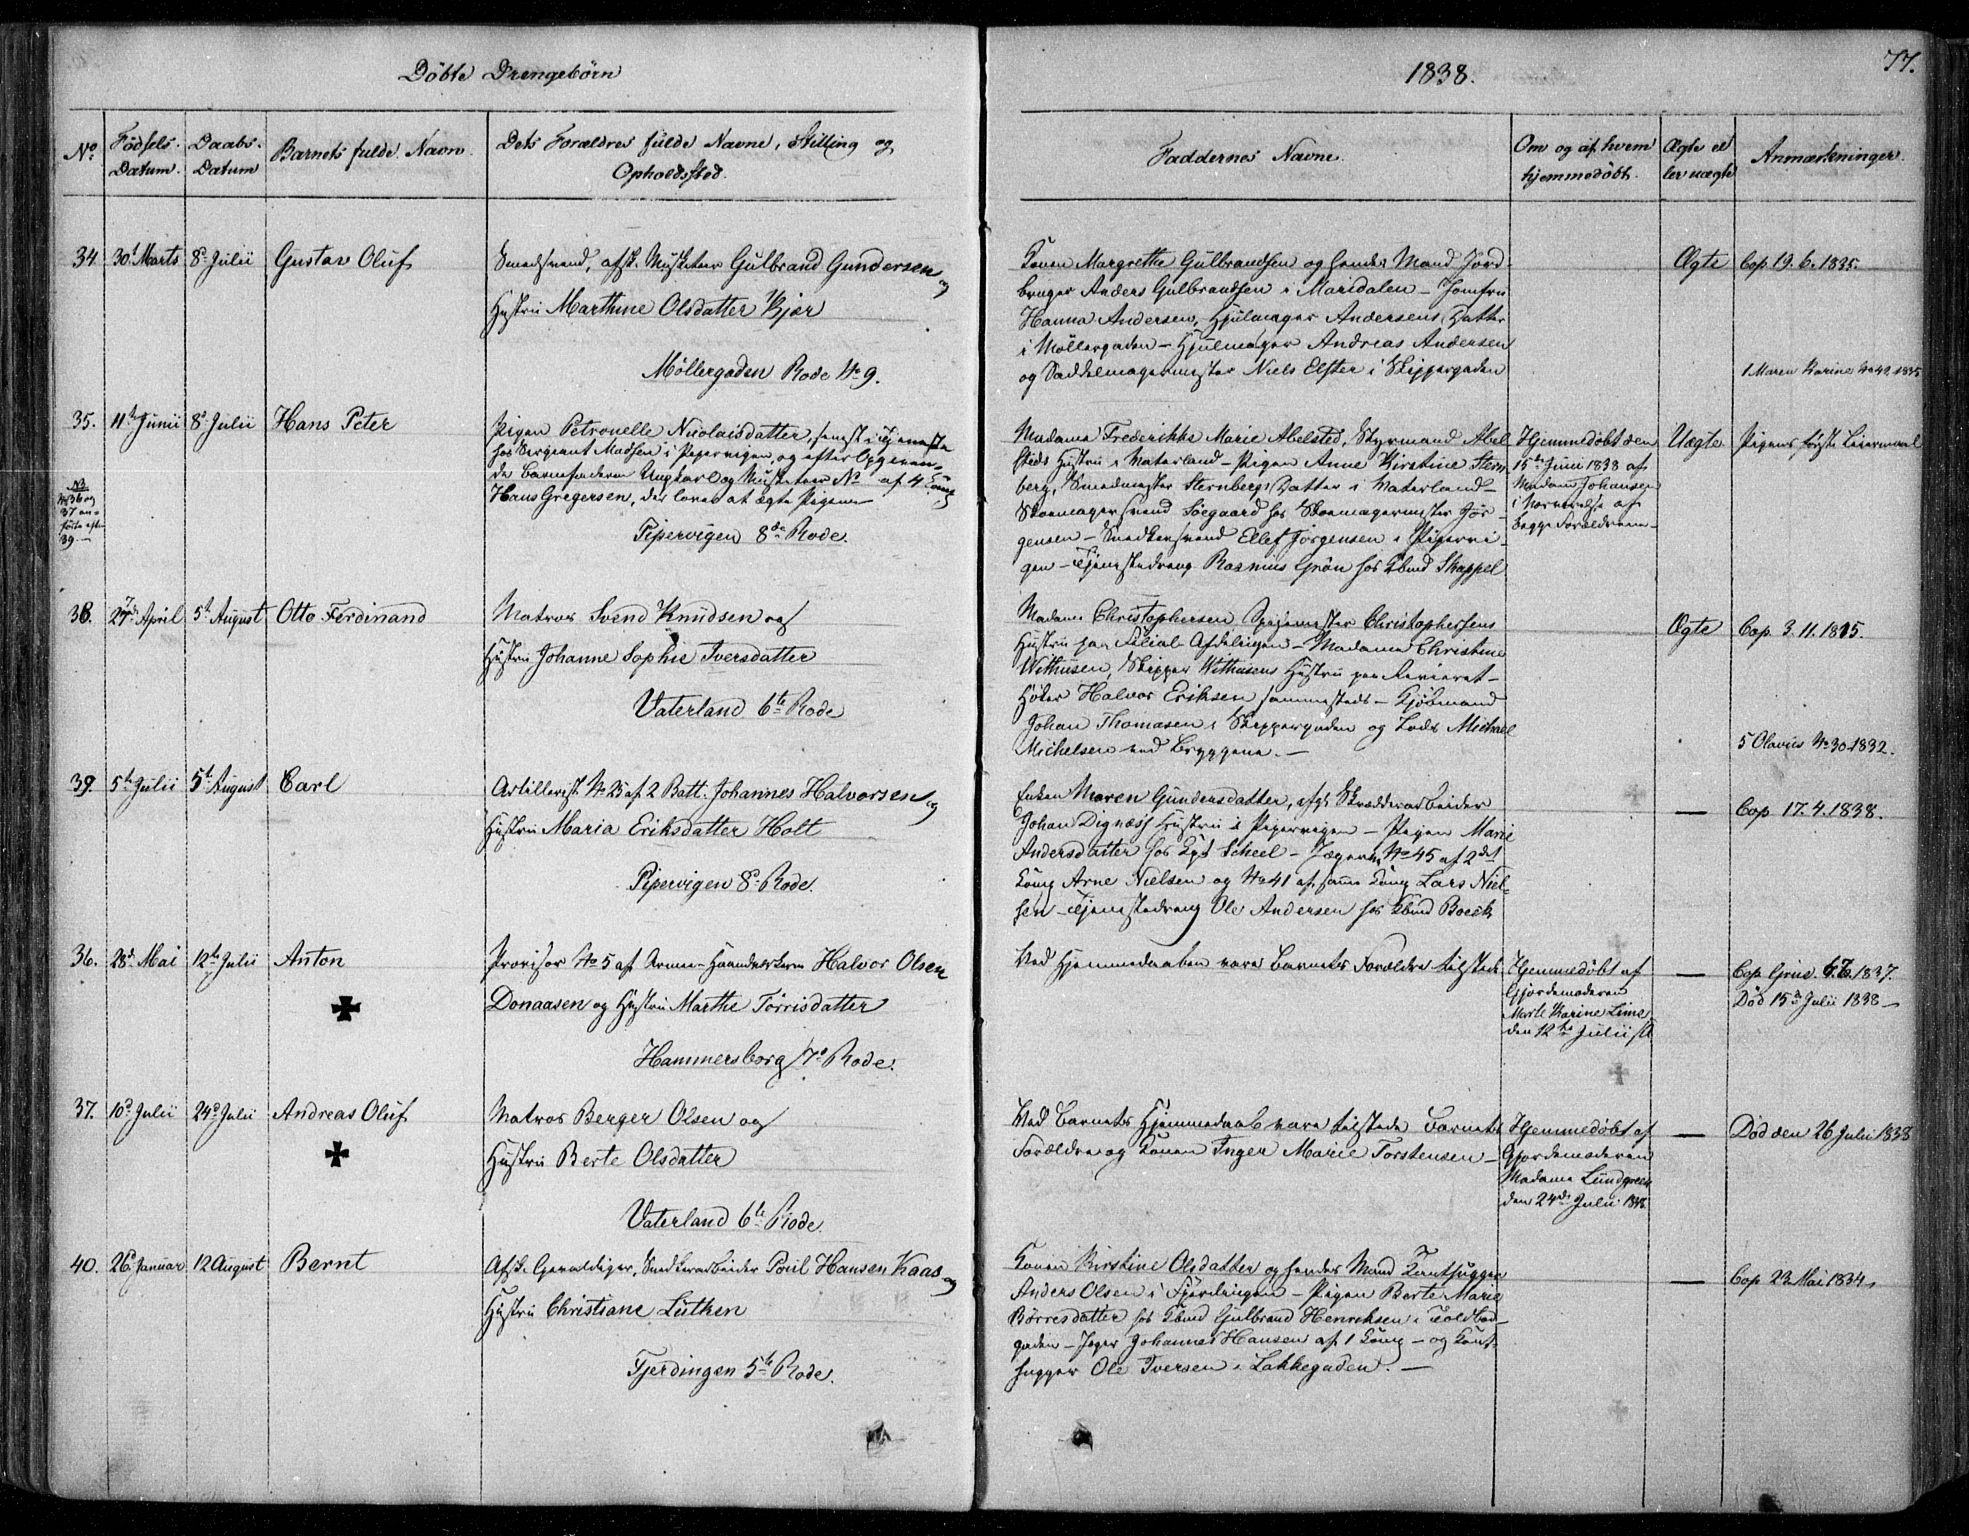 Döbte Drengebörn
1838.
77.
No
Födsels-Datum.
Daabs-Datum
Barnets fulde Navn.
Dets Forældres fulde Navne, Stilling og
Opholdssted.
Faddernes Navne.
Om og af hvem
hjemmedöbt.
Ægte el
ler uægte
Anmærkninger.
34. 30d Marts 8d Julii Gustav Oluf
Smedsvend, afsk. Musketeer Gulbrand Gundersen og
Hustru Marthine Olsdatter Kjær
Möllergaden Rode No 9.
Konen Margrethe Gulbrandsen og hendes Mand Jord-
bruger Anders Gulbrandsen i Maridalen - Jomfru
Hanna Andersen, Hjulmager Andersens Datter
i Möllergaden - Hjulmager Andreas Andersen
og Saddelmagermester Niels Elster i Skippergaden
Ægte
Cop. 19. 6. 1835.
1 Maren Karine No 49. 1835
35. 11te Junii 8d Julii Hans Peter
Pigen Petronelle Nicolaisdatter, senest i Tjeneste
hos Sergeant Madsen i Pipervigen, og efter Opgiven-
de Barnefaderen Ungkarl og Musketeer No af 4 Comp
Hans Gregersen, der lover at ægte Pigen
Pipervigen 8de Rode.
NB
No 36 og
37 an-
förte efter
39.-
Madame Frederikke Marie Abelsted, Styrmand Abel
steds Hustru i Vaterland - Pigen Anne Kirstine Stern
berg, Smedmester Sternbergs Datter i Vaterland -
Skomagersvend Söegaard hos Skomagermester Jör-
gensen - Snedkersvend Ellef Jörgensen i Pipervi-
gen - Tjenestedreng Rasmus Grön hos Kbmd Skappel
Hjemmedöbt den
15de Juni 1838 af
Madam Johansen
i Nærværelse af
begge Forældrene -
Uægte
Pigens förste Leiermaal
38. 27de April 5te August Otto Ferdinand
Matros Svend Knudsen og
Hustru Johanne Sophie Iversdatter
Vaterland 6te Rode
Madame Christophersen Spisemester Christophersens
Hustru paa Filial-Afdelingen - Madame Christine
Withusen, Skipper Withusens Hustru paa Revieret -
Höker Halvor Eriksen sammesteds - Kjöbmand
Johan Thomasen i Skippergaden og Lods Michael
Michelsen ved Bryggene. -
Ægte
Cop. 3. 11. 1815.
5 Olavus No 30. 1832.
39. 5te Julii 5te August Carl
Artillerist No 23 af 2 Batt. Johannes Halvorsen og
Hustru Maria Eriksdatter Holt
Pipervigen 8d Rode.
Enken Maren Gundersdatter, afgl. Skrædderarbeider
Johan Dignæss Hustru i Pipervigen - Pigen Marie
Andersdatter hos Kpt Scheel - Jægerne No 45 af 2det
Comp Arne Nielsen og No 41 af samme Comp Lars Niel-
sen - Tjenestedreng Ole Andersen hos Kbmd Boeck
—
Cop 17. 4. 1838.
36. 28d Mai 12te Julii Anton
Provisor No 5 af Armee-Haandværkerne Halvor Olsen
Donaasen og Hustru Marthe Törrisdatter
Hammersborg 7d Rode.
Ved Hjemmedaaben vare Barnets Forældre tilstede
Hjemmedöbt af
Gjordemoderen
Marte Karine Lime
den 12te Julii
—
Cop. Grue 1837.
Död 15d Julii 1838 -
37. 10d Julii 24d Julii Andreas Oluf
Matros Berger Olsen og
Hustru Berte Olsdatter
Vaterland 6te Rode.
Ved Barnets Hjemmedaab vare tilstede Barnets
Forældre og Konen Inger Marie Torstensen -
Hjemmedöbt af
Gjordemoderen
Madame Lundgreen
den 24de Julii 1838
—
Död den 26 Julii 1838
40. 26d Januar 12 August Bernt
Afsk. Gevaldiger, Snedkerarbeider Poul Hansen Kaas og
Hustru Christiane Lüthen
Fjerdingen 5te Rode.
Konen Kirstine Olsdatter og hendes Mand Tömthugger
Anders Olsen i Fjerdingen - Pigen Berte Marie
Börresdatter hos Kbmd Gulbrand Henriksen i Toldbod-
gaden - Jæger Johannes Hansen af 1 Comp - og
hugger Ole Iversen i Lakkegaden. -
—
Cop 23 Mai 1834,